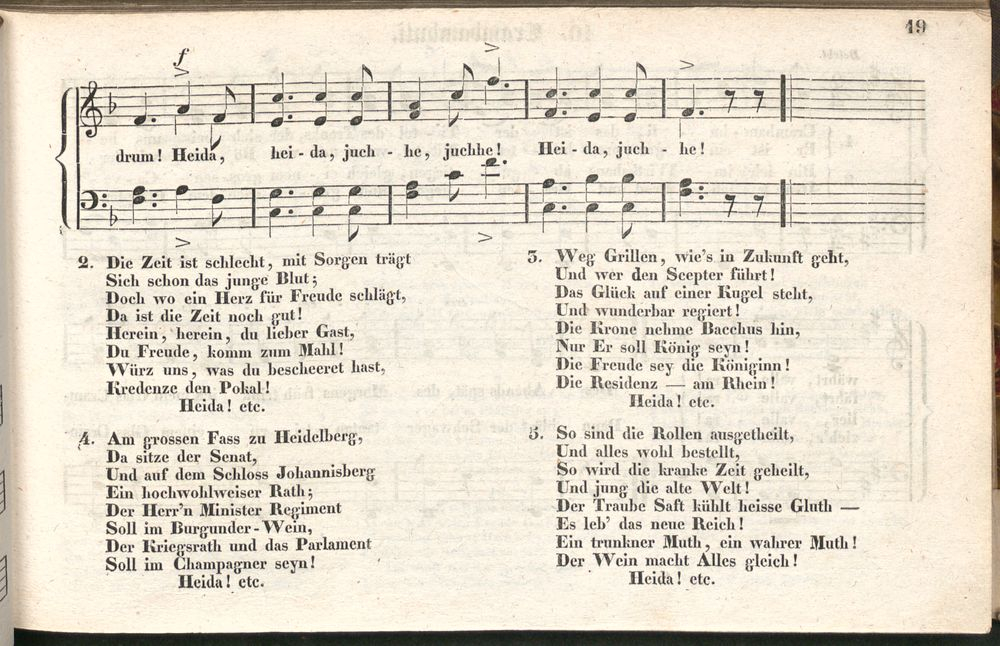 19
f
drum! Heida, hei - da, juch - he, juchhe! Hei - da, juch - he!
2. Die Zeit ist schlecht, mit Sorgen trägt
Sich schon das junge Blut;
Doch wo ein Herz für Freude schlägt,
Da ist die Zeit noch gut!
Herein, herein, du lieber Gast,
Du Freude, komm zum Mahl!
Würz uns, was du bescheeret hast,
Kredenze den Pokal!
Heida! etc.
3. Weg Grillen, wie's in Zukunft geht,
Und wer den Scepter führt!
Das Glück auf einer Kugel steht,
Und wunderbar regiert!
Die Krone nehme Bacchus hin,
Nur Er soll König seyn!
Die Freude sey die Königinn!
Die Residenz — am Rhein!
Heida! etc.
4. Am grossen Fass zu Heidelberg,
Da sitze der Senat,
Und auf dem Schloss Johannisberg
Ein hochwohlweiser Rath;
Der Herr'n Minister Regiment
Soll im Burgunder-Wein,
Der Kriegsrath und das Parlament
Soll im Champagner seyn!
Heida! etc.
5. So sind die Rollen ausgetheilt,
Und alles wohl bestellt,
So wird die kranke Zeit geheilt,
Und jung die alte Welt!
Der Traube Saft kühlt heisse Gluth —
Es leb' das neue Reich!
Ein trunkner Muth, ein wahrer Muth!
Der Wein macht Alles gleich!
Heida! etc.